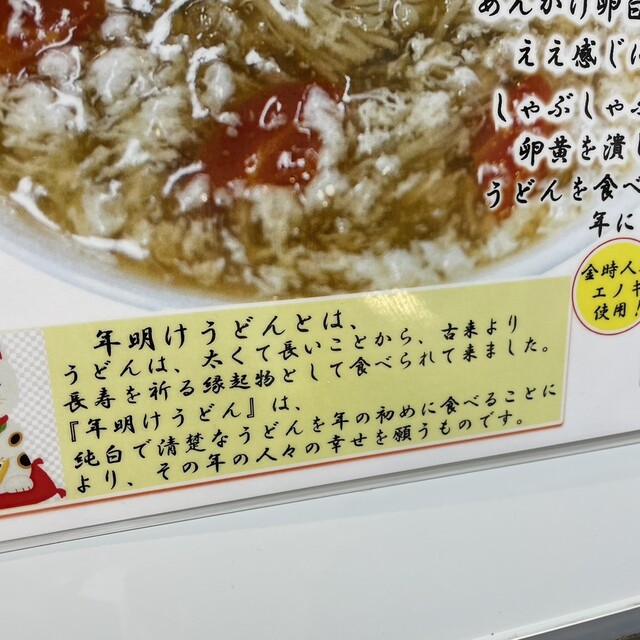 あんかけ卵白
ええ感じに
しゃぶしゃぶ
卵黄を潰し
うどんを食べ
年に
金時人
エノキ
使用！
年明けうどんとは、
うどんは、太くて長いことから、古来より
長寿を祈る縁起物として食べられて来ました。
『年明けうどん』は、
純白で清楚なうどんを年の初めに食べることに
より、その年の人々の幸せを願うものです。